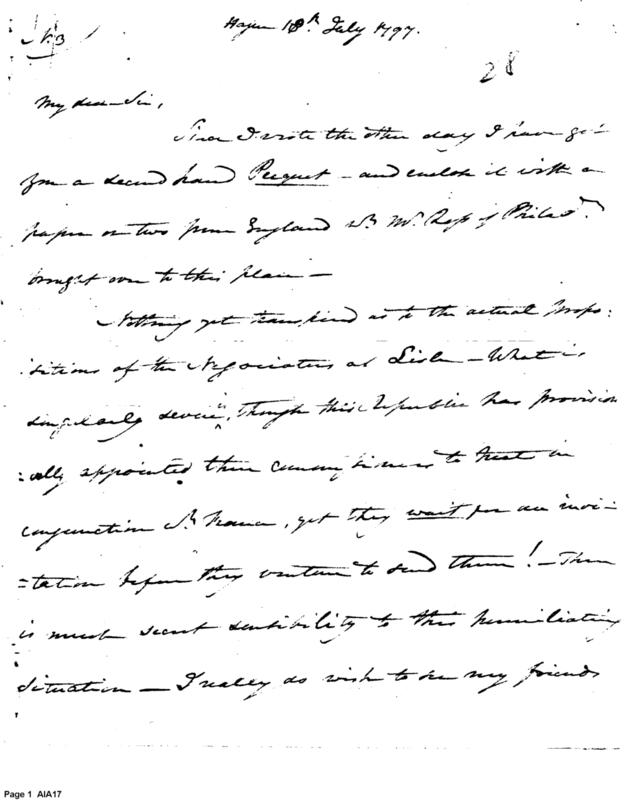 No 3
Hague 18th July 1797.
28
My dear Sir,
Since I wrote the other day I have
a second hand Pecquet – and enclose it with a
paper or two from England wh Mr. Ross of Philada.
brought over to this place –
Nothing yet transpired as to the actual Propo:
:sitions of the Negociators at Lisle – What is
singularly severe, though this Republic has provision
:ally appointed three commissioners to treat in
conjunction wh France, yet they wait for an invi-
=tation before they venture to send them! – There
is much secret sensibility to this humiliating
situation – I really do wish to see my friends
Page 1 AIA17